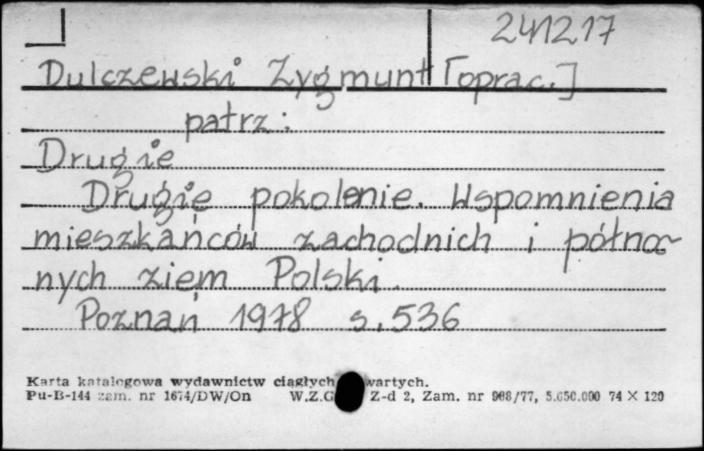 241217
Dulczewski Zygmunt [oprac.]
patrz:
Drugie
Drugie pokolenie. Wspomnienia
mieszkańców zachodnich i północ
nych ziem Polski.
Poznań 1978 s. 536
Karta katalogowa wydawnictw ciągłych wartych.
Pu-B-144 zam. nr 1674/DW/On W.Z.G Z-d 2, Zam. nr 988/77, 5.650.000 74 X 120